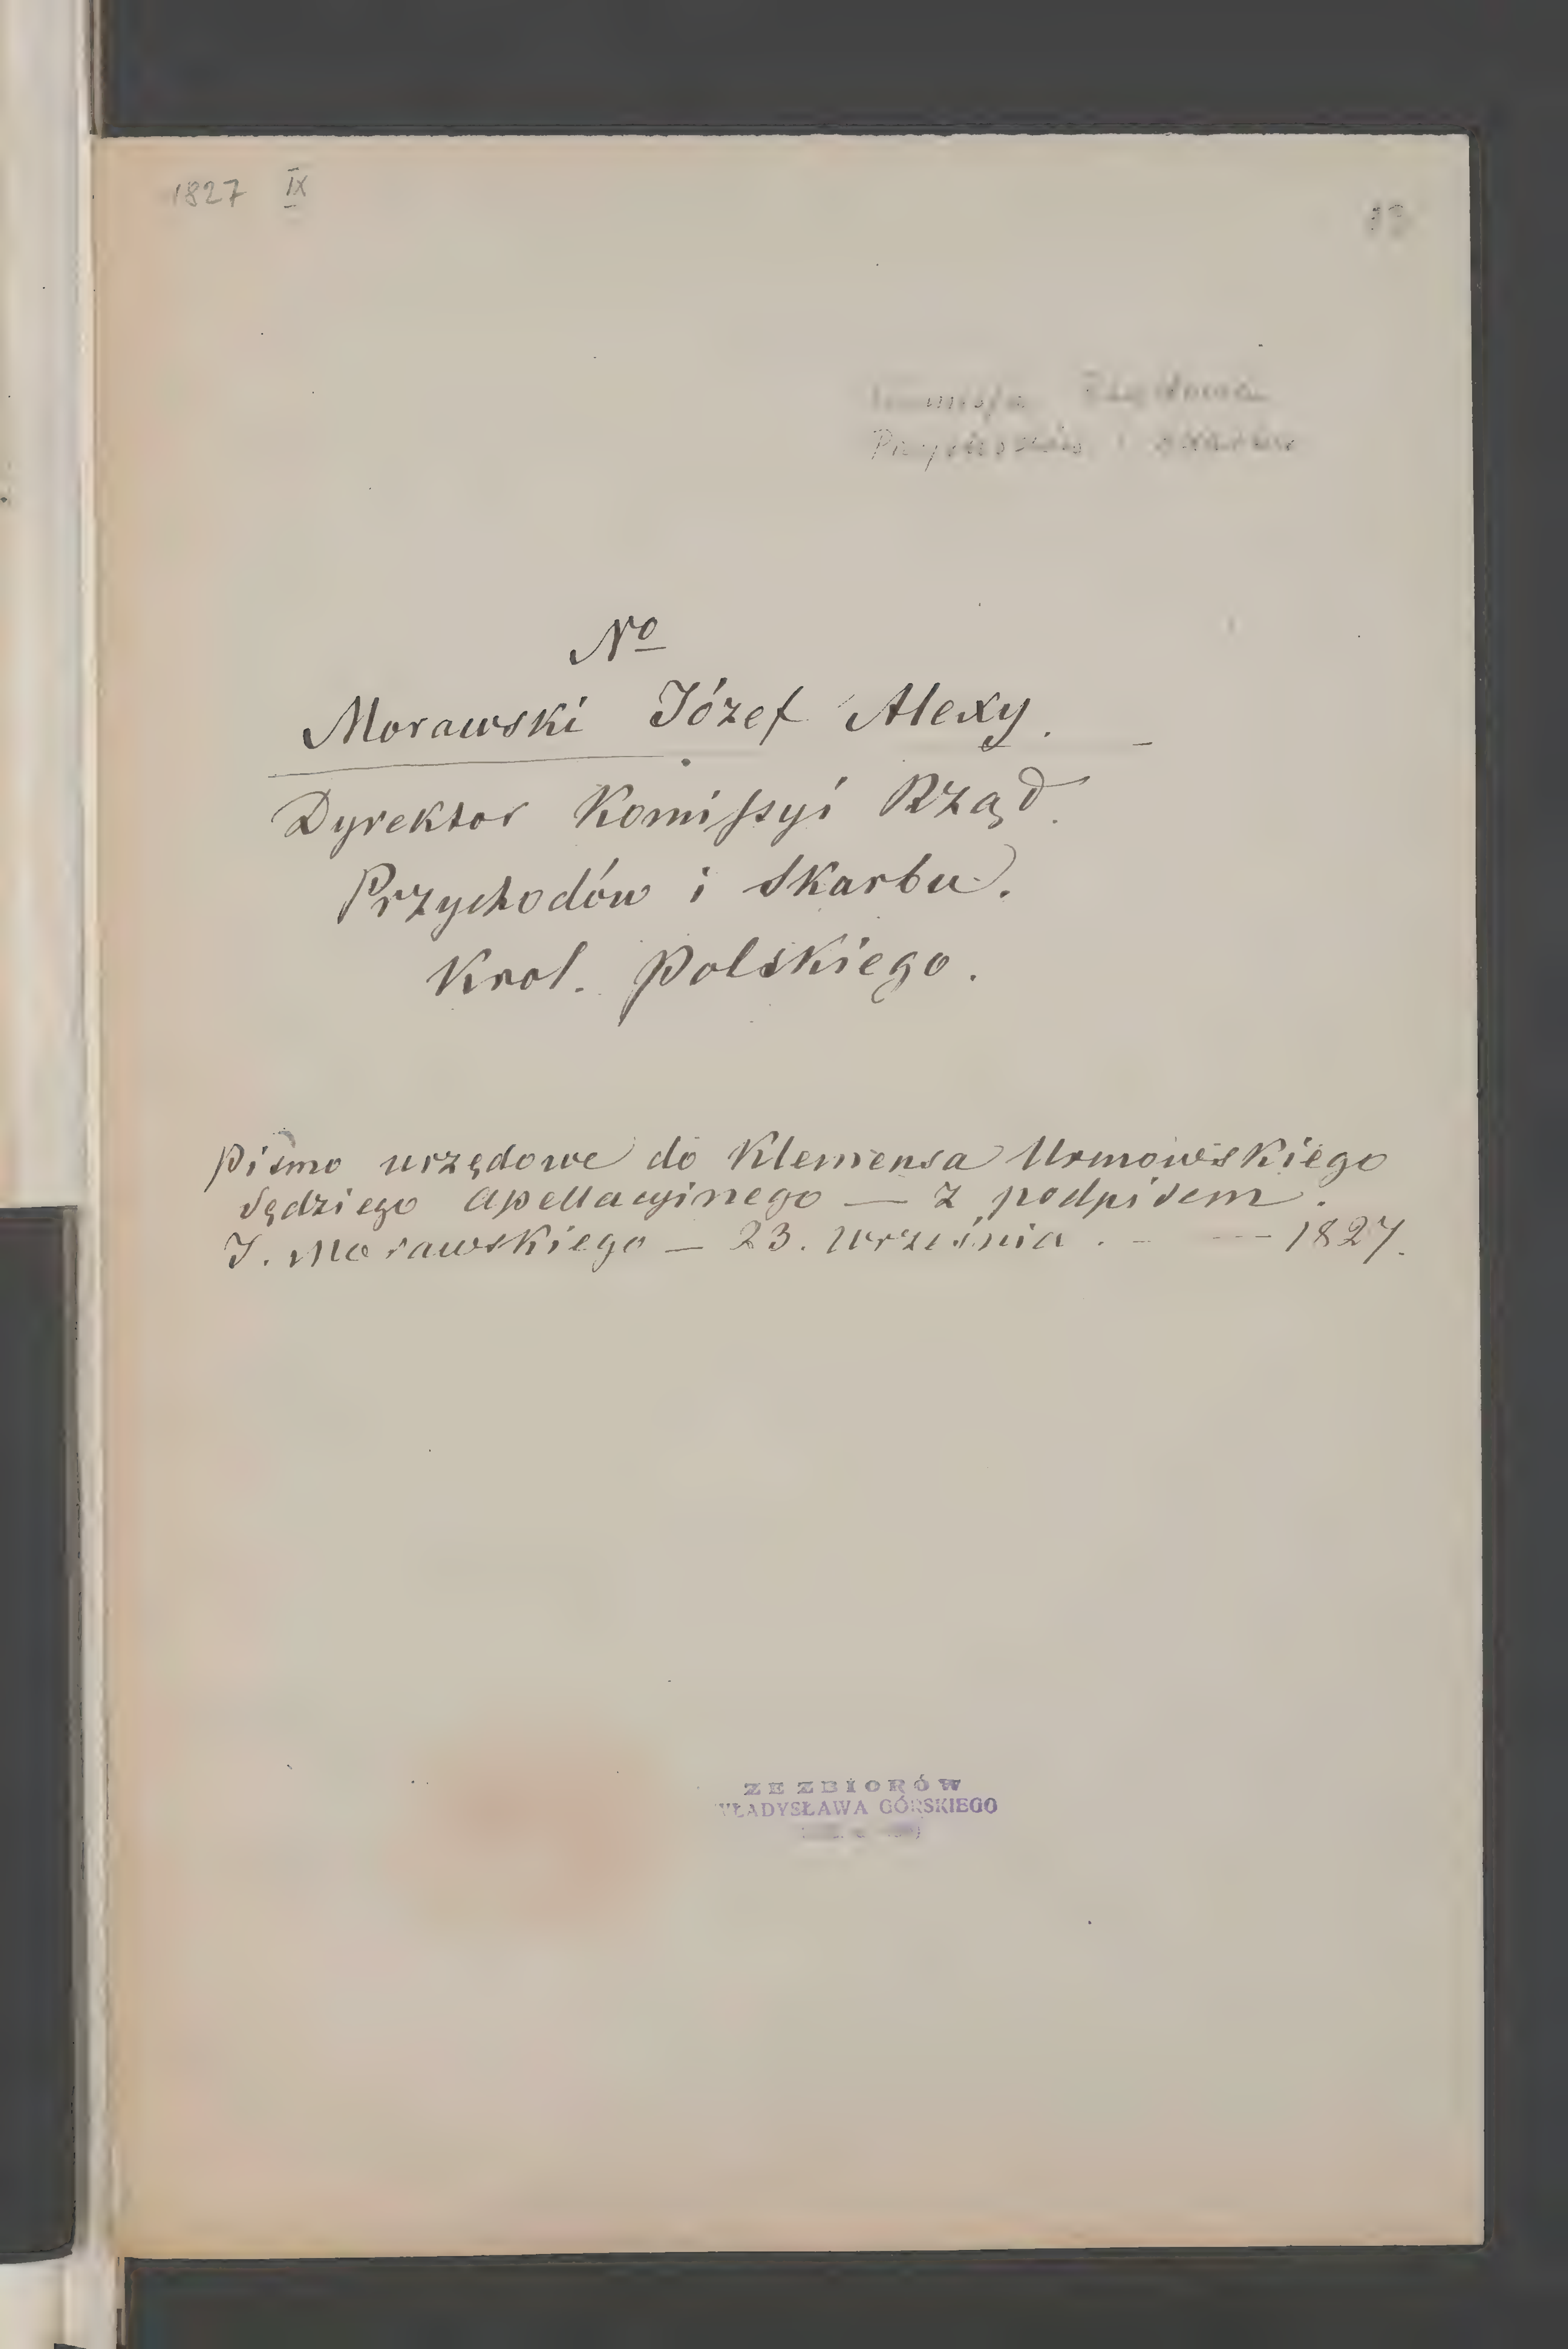 1827 IX
13
Komisja Rządowa
Przychodów i Skarbu
No
Morawski Józef Alexy.
Dyrektor Komissyi Rząd.
Przychodów i Skarbu.
Krol. Polskiego.
Pismo urzędowe do Klemensa Urmowskiego
Sędziego Apellacyinego — z podpisem.
J. Morawskiego — 23. Września . — 1827.
ZE ZBIORÓW
WŁADYSŁAWA GÓRSKIEGO